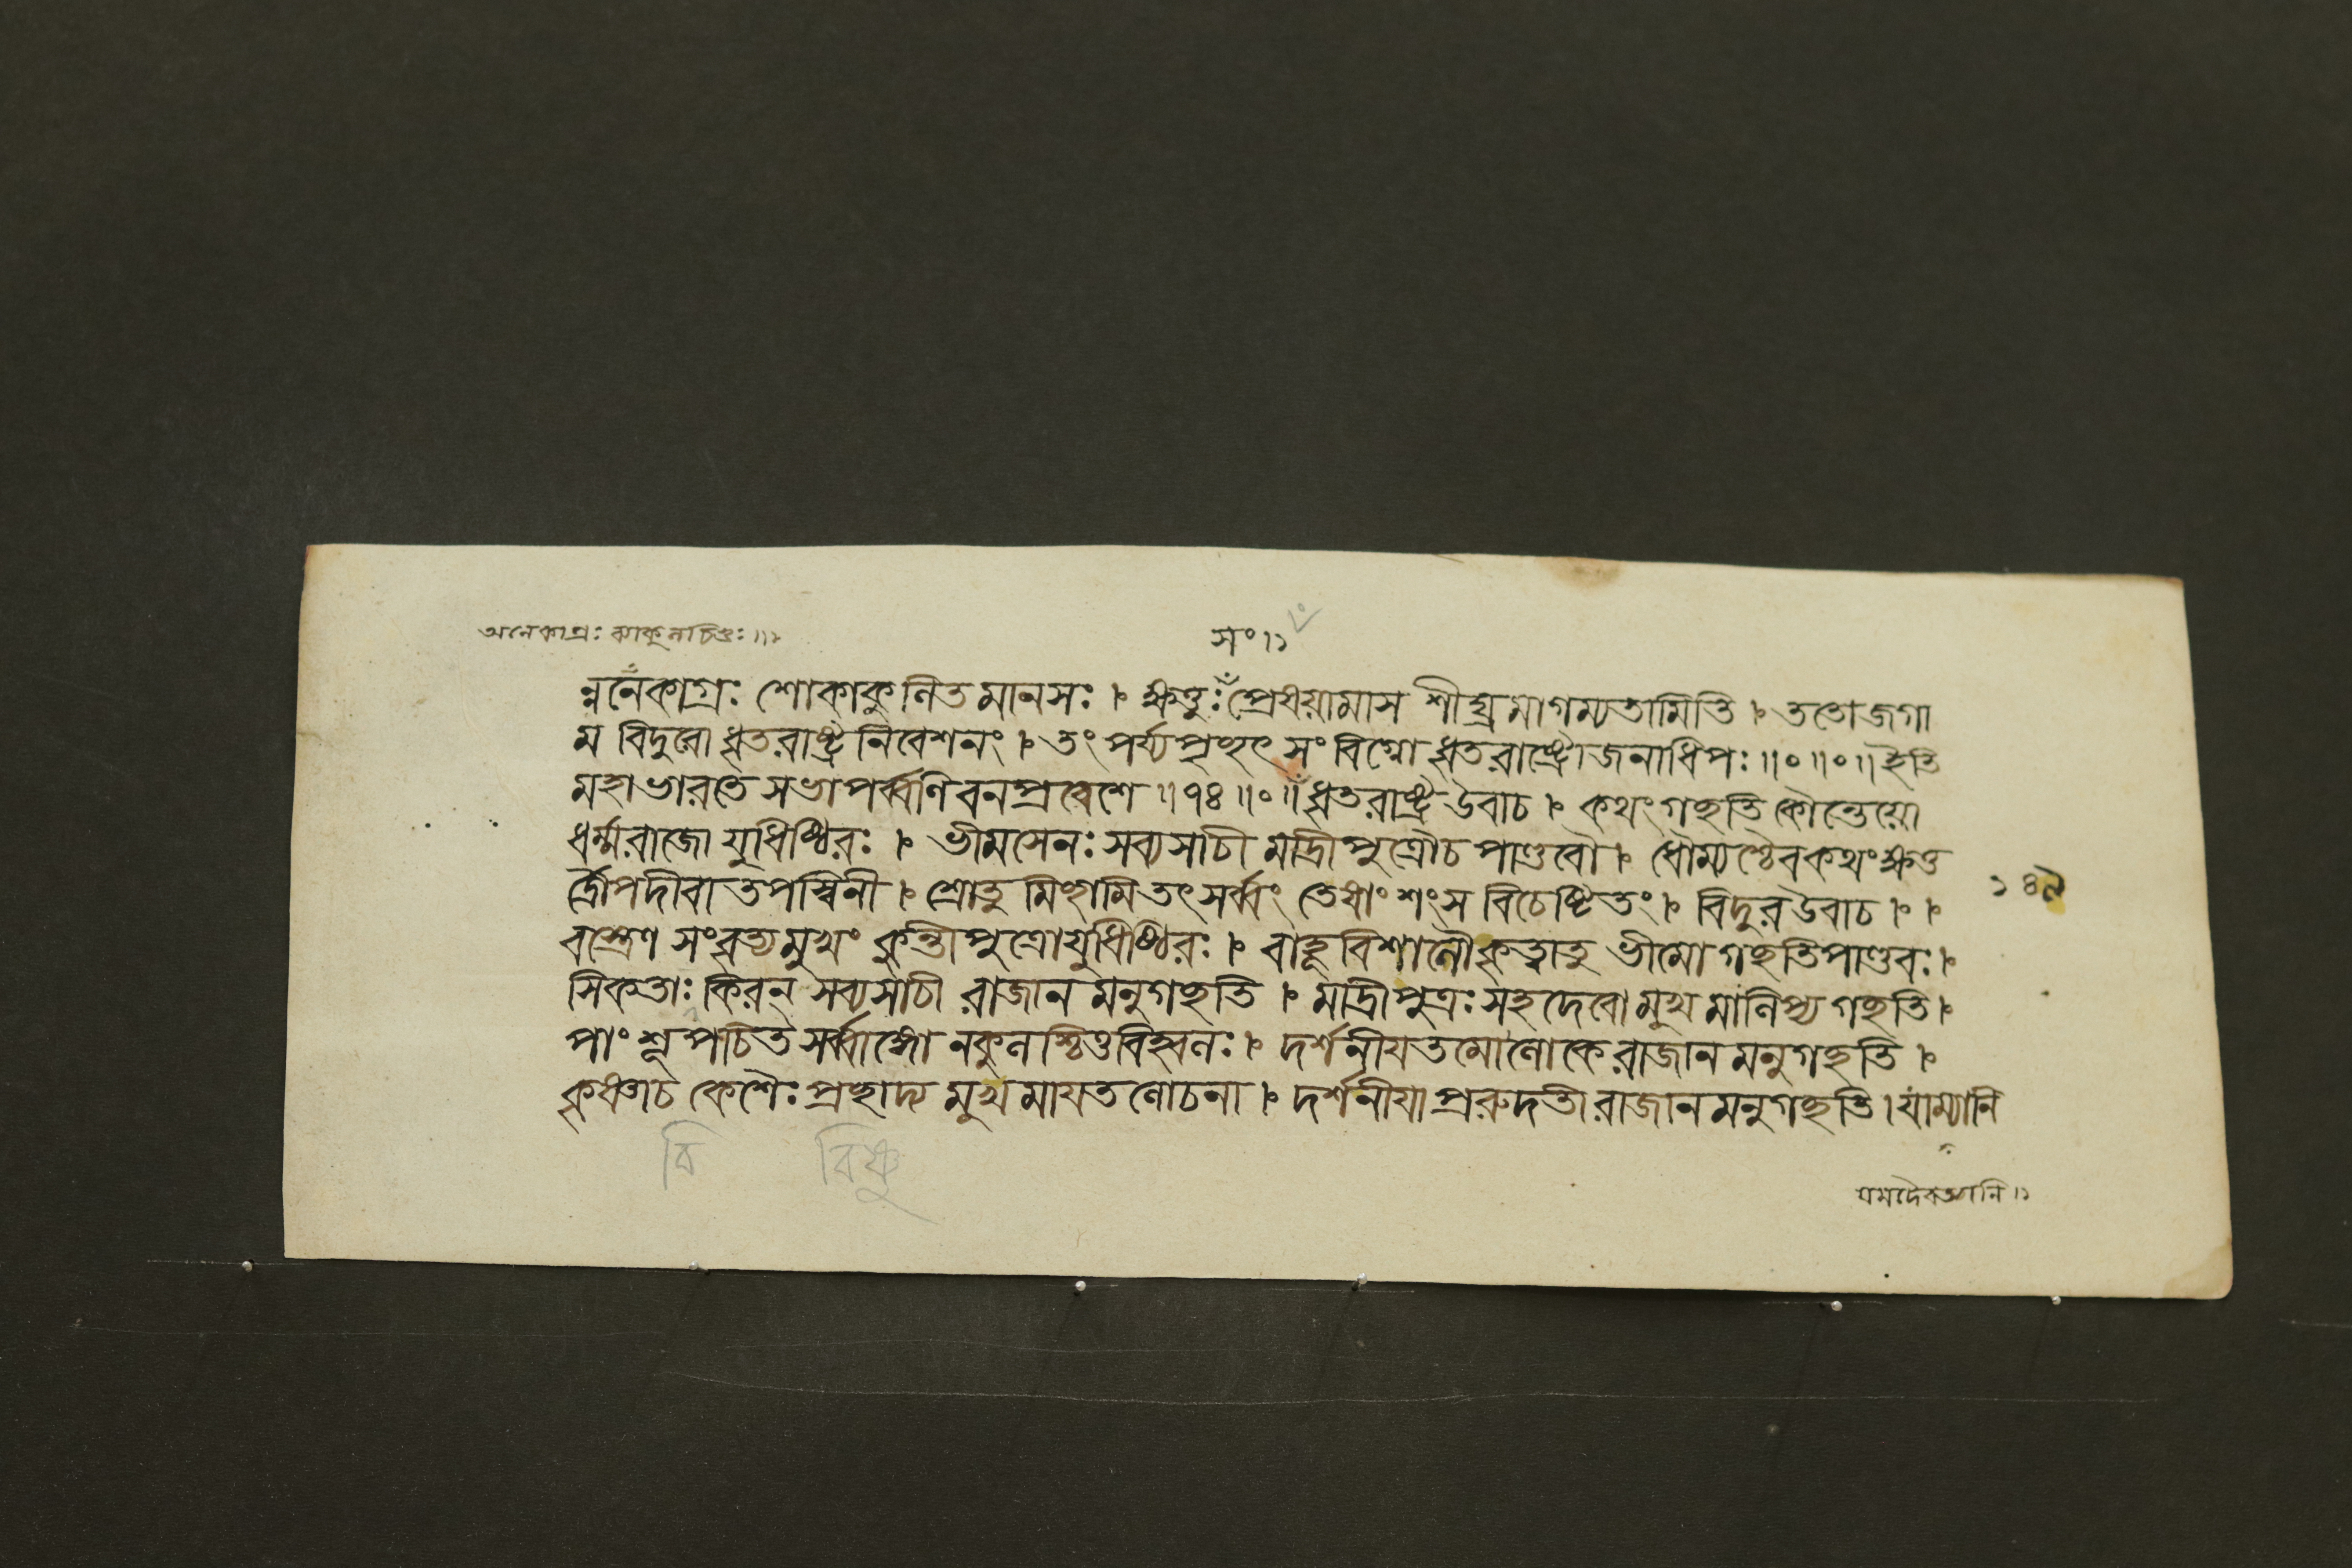 অনেকাগ্রঃ ব্যাকুলচিত্তঃ ॥১
সং।১
ন্ননেকাগ্রঃ শোকাকুলিতমানসঃ । ক্ষত্তুঃ প্রেষয়ামাস শীঘ্রমাগম্যতামিতি । ততোজগা
ম বিদুরো ধৃতরাষ্ট্রনিবেশনং । তং পর্য্যপৃচ্ছৎ সংবিগ্নো ধৃতরাষ্ট্রোজনাধিপঃ ॥০॥০॥ ইতি
মহাভারতে সভাপর্ব্বণি বনপ্রবেশে ॥৭৪॥০॥ ধৃতরাষ্ট্র উবাচ । কথং গচ্ছতি কৌন্তেয়ো
ধর্ম্মরাজো যুধিষ্ঠিরঃ । ভীমসেনঃ সব্যসাচী মাদ্রীপুত্রৌচ পাণ্ডবৌ । ধৌম্যশ্চৈব কথং ক্ষত্ত
র্দ্রৌপদীবা তপস্বিনী । শ্রোতুমিচ্ছামি তৎ সর্ব্বং তেষাং শংস বিচেষ্টিতং । বিদুর উবাচ । ।
বস্ত্রেণ সংবৃত্য মুখং কুন্তীপুত্রো যুধিষ্ঠিরঃ । বাহূ বিশালৌ কৃত্বাতু ভীমো গচ্ছতি পাণ্ডবঃ ।
সিকতাঃ কিরন্ সব্যসাচী রাজানমনুগচ্ছতি । মাদ্রীপুত্রঃ সহদেবো মুখমালিপ্য গচ্ছতি ।
পাংশূপচিত সর্ব্বাঙ্গো নকুলশ্চিত্তবিহ্বলঃ । দর্শনীয়তমো লোকে রাজানমনুগচ্ছতি ।
কৃষ্ণাচ কেশৈঃ প্রচ্ছাদ্য মুখমায়তলোচনা । দর্শনীয়া প্ররুদতী রাজানমনুগচ্ছতি । যাম্যানি
যমদৈবত্যানি ॥১
বি বিষ্ণু